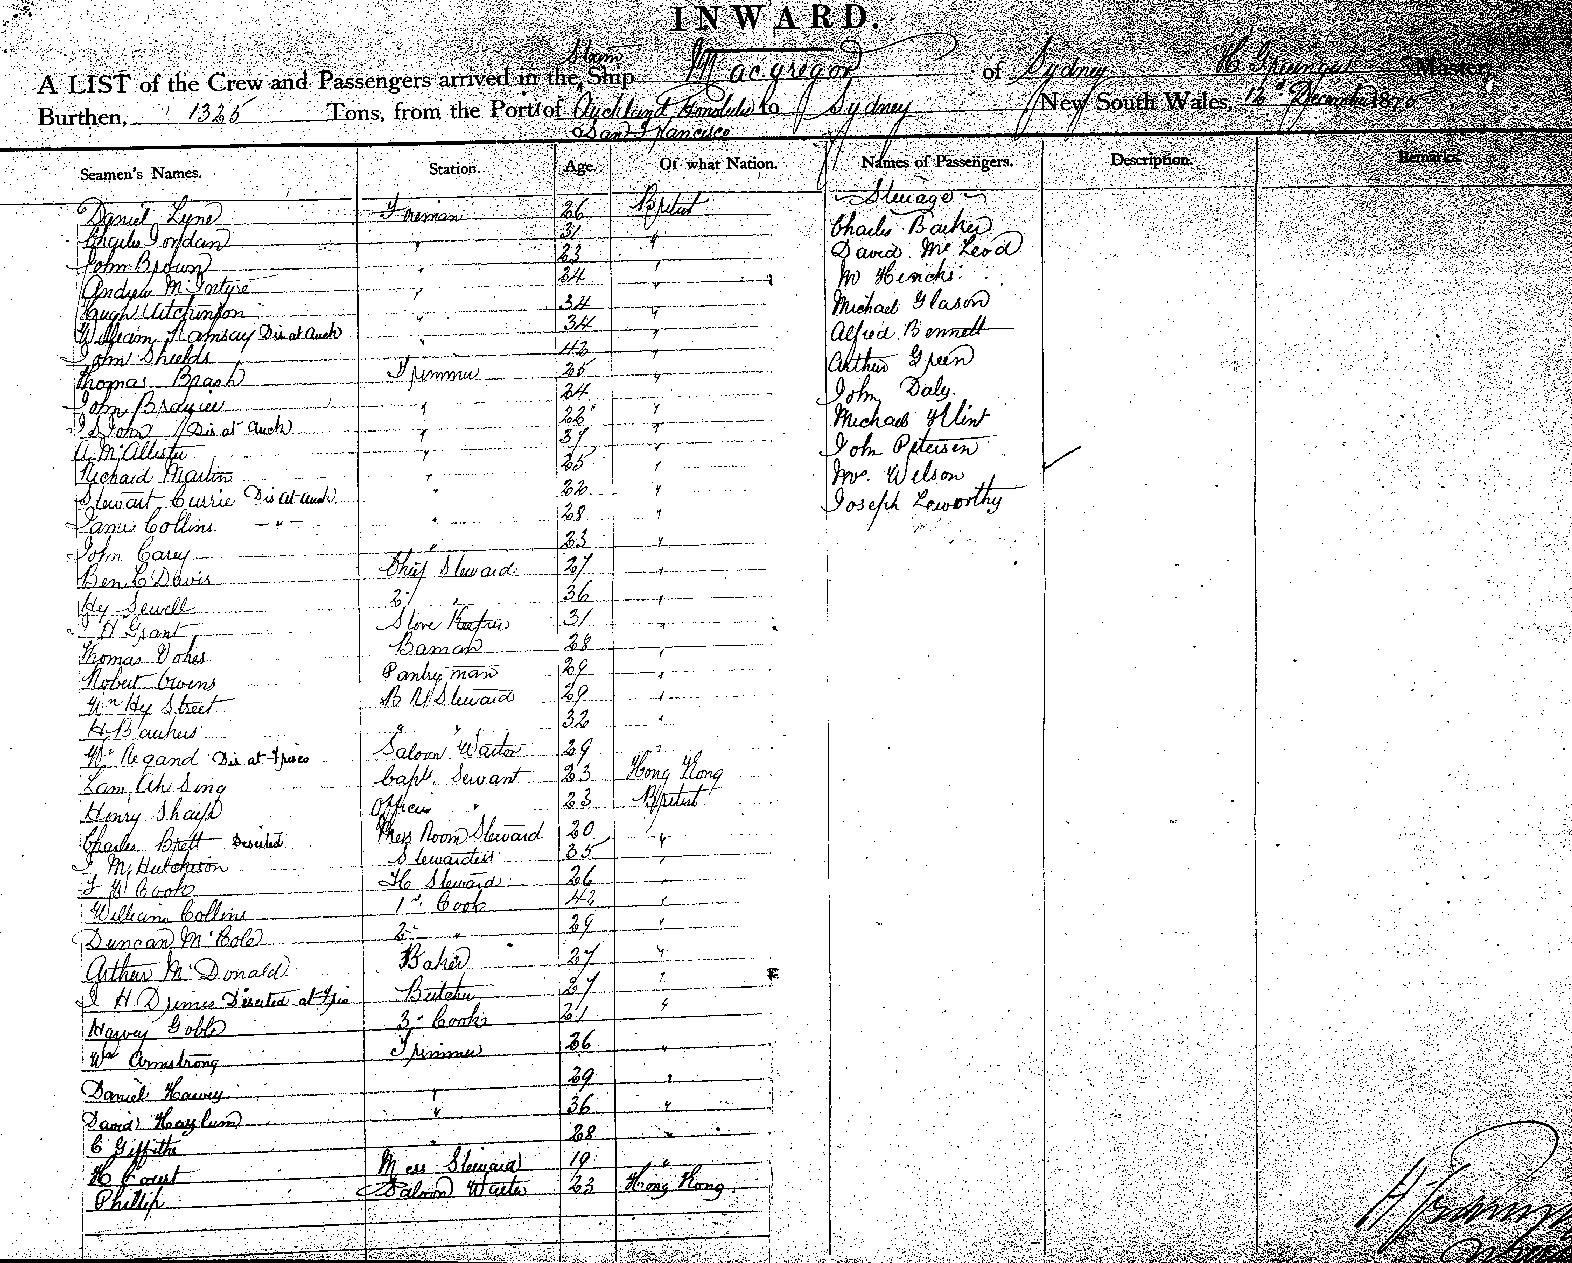 INWARD.
Steam
A LIST of the Crew and Passengers arrived in the Ship Macgregor of Sydney Master,
Burthen, 1325 Tons, from the Port of Auckland Honolulu to Sydney New South Wales, 12th December 187
San Francisco
Seamen's Names. Station. Age. Of what Nation. Names of Passengers. Description. Remarks.
Steerage
Daniel Lyne Fireman 26 British Charles Barker
Charles Jordan " 31 " David McLeod
John Brown " 23 "
Andrew McIntyre " 24 " Michael Glason
Hugh Hutchinson " 34 " Alfred Bennett
William Ramsay Dis at Auck " 34 "
John Shields " 42 " Arthur Green
Thomas Brash Trimmer 25 " John Daly
John Brazier " 24 " Michael Flint
St John Dis at Auck " 22 "
A McAllister " 37 " John Petersen
Richard Martin " 25 " Mr. Wilson
Stewart Currie Dis at Auck " 22 " Joseph Leworthy
James Collins " " 28 "
John Carey " 23 "
Ben C Davis Chief Steward 27 "
Hy Sewell 2 " 36 "
J H Grant Store Keeper 31 "
Thomas Vokes Barman 28 "
Robert Owens Pantry man 29 "
Wm Hy Street B R Steward 29 "
H Backus " " 32 "
Wm Regand Dis at Frisco Saloon Waiter 29 "
Lam Ah Sing Capts. Servant 23 Hong Kong
Henry Sharp Officers " 23 British
Charles Brett Deserted Mess Room Steward 20 "
J McHutchison Stewardess 35 "
F W Cook Steward 26 "
William Collins 1st Cook 42 "
Duncan McCole 2 " 29 "
Arthur McDonald Baker 27 "
J H Deserted at Butcher 27 "
Harvey Goble 3 Cook 21 "
Wm Armstrong Trimmer 26 "
Daniel Harvey " 29 "
David Haylum " 36 "
C Griffiths " 28 "
H Forest Mess Steward 19 "
Phillip Saloon Waiter 23 Hong Kong